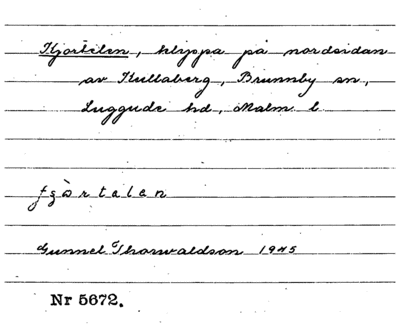 Kjortelen, klippa på nordsidan
av Kullaberg, Brunnby sn,
Luggude hd, Malm. l
Gunnel Thorwaldson 1945
Nr 5672.